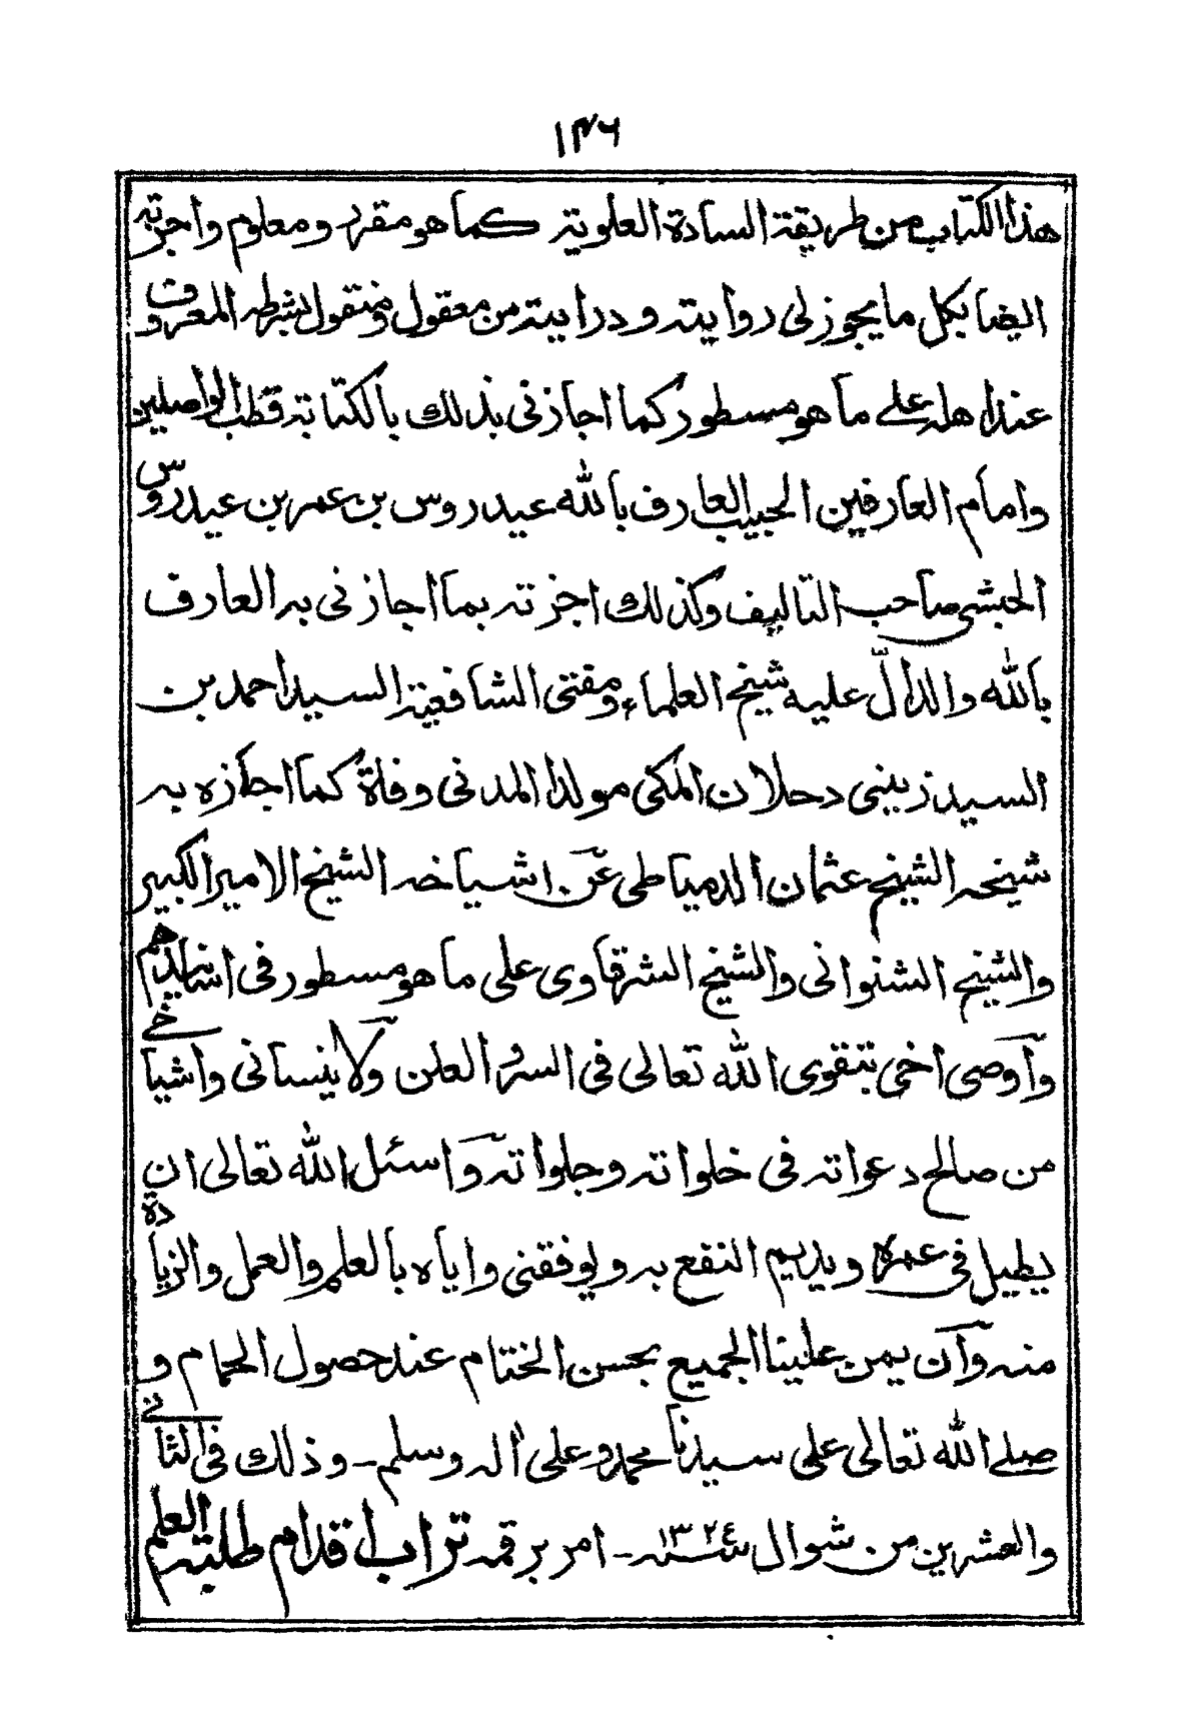 ١٣٦
هذا الكتاب من طريقة السادة العلوية كما هو مقرر ومعلوم واجزته
ايضا بكل ما يجوز لى روايته ودرايته من معقول ومنقول بشرطه المعروف
عند اهله على ما هو مسطور كما اجازنى بذلك بالكتابة قطب الواصلين
وامام العارفين الحبيب العارف بالله عيدروس بن عمر بن عيدروس
الحبشى صاحب التاليف وكذلك اجزته بما اجازنى به العارف
بالله والدالّ عليه شيخ العلماء ومفتى الشافعية السيد احمد بن
السيد زينى دحلان المكى مولدا المدنى وفاة كما اجازه به
شيخه الشيخ عثمان الدمياطى عن اشياخه الشيخ الامير الكبير
والشيخ الشنوانى والشيخ الشرقاوى على ما هو مسطور فى اسانيدهم
وأوصى اخى بتقوى الله تعالى فى السر والعلن ولا ينسانى واشياخى
من صالح دعواته فى خلواته وجلواته واسئل الله تعالى ان
يطيل فى عمره ويديم النفع به ويوفقنى واياه بالعلم والعمل والزيادة
منه وأن يمن علينا الجميع بحسن الختام عند حصول الحمام و
صلے الله تعالى على سيدنا محمد وعلى اله وسلم - وذلك فى الثانى
والعشرين من شوال سنه ١٣٢٤ - امر برقمه تراب اقدام طلبة العلم